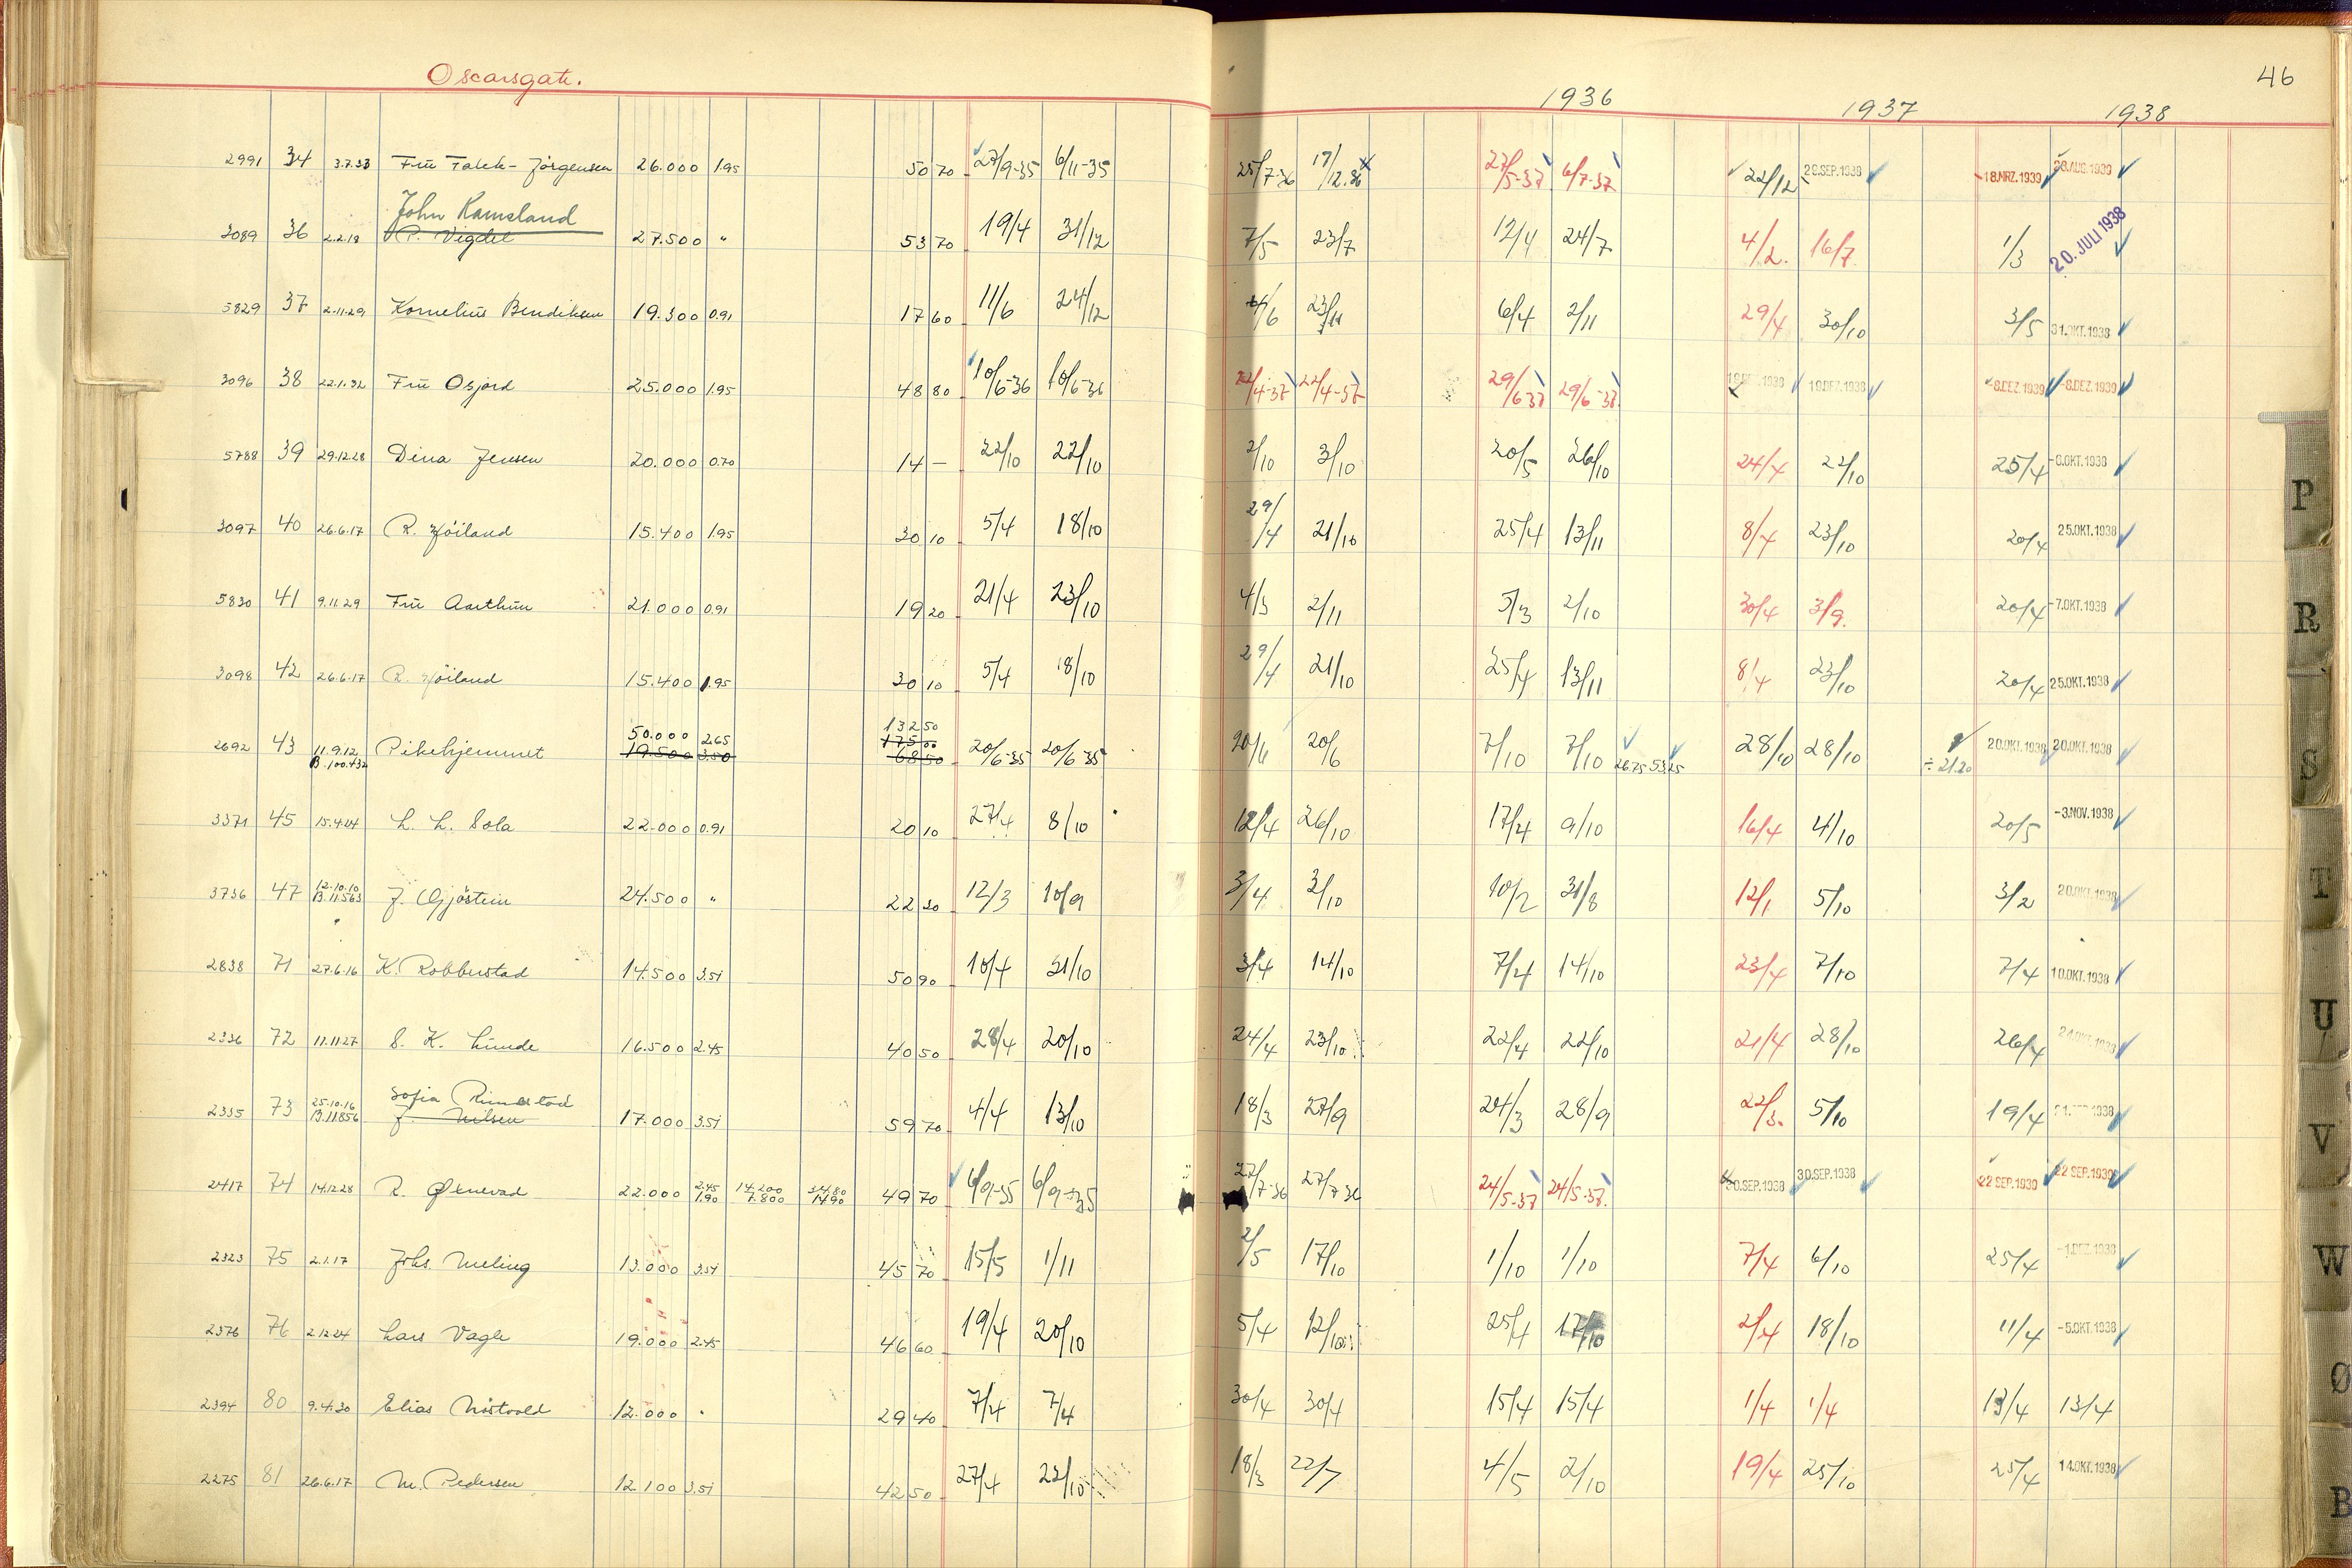 Oscarsgate.
46
1936 1937 1938
2991 34 3.7.33 Frü Falck-Jörgensen 26.000 1.95 50 70 27/9-35 6/11-35 25/7-36 17/12.36 27/5-37 6/7-37 22/12 29.SEP.1938 18.MRZ.1939 28.AUG.1939
John Ramsland
3089 36 2.2.18 P. Vigdel 27.500 " 53 70 19/4 31/12 7/5 23/7 12/4 24/7 4/2. 16/7. 1/3 20. JULI 1938
5829 37 2.11.29 Kornelius Bendiksen 19.300 0.91 17 60 11/6 24/12 4/6 23/11 6/4 2/11 29/4 30/10 3/5 31.OKT.1938
3096 38 22.1.32 Frü Osjord 25.000 1.95 48 80 10/6-36 10/6-36 22/4-37 22/4-37 29/6-38 29/6-38. 19.DEZ.1938 19.DEZ.1938 -8.DEZ.1939 -8.DEZ.1939
5788 39 29.12.28 Dina Jensen 20.000 0.70 14 — 22/10 22/10 2/10 3/10 20/5 26/10 24/4 22/10 25/4 OKT.1938
3097 40 26.6.17 R. Höiland 15.400 1.95 30 10 5/4 18/10 29/4 21/10 25/4 13/11 8/4 23/10 20/4 25.OKT.1938
5830 41 9.11.29 Frü Aarthun 21.000 0.91 19 20 21/4 23/10 4/3 2/11 5/3 2/10 30/4 3/9. 20/4 -7.OKT.1938
3098 42 26.6.17 R. Höiland 15.400 1.95 30 10 5/4 18/10 29/4 21/10 25/4 13/11 8/4 23/10 20/4 25.OKT.1938
50.000 2.65 132 50
175 00
2692 43 11.9.12 Pikehjemmet 19.500 3.50 68 50 20/6-35 20/6-35 20/6 20/6 7/10 7/10 26.75 53.25 28/10 28/10 ÷ 21.20 20.OKT.1938 20.OKT.1938
B.100.432
3371 45 15.4.24 L. L. Sola 22.000 0.91 20 10 27/4 8/10 12/4 26/10 17/4 9/10 16/4 4/10 20/5 -3.NOV.1938
3736 47 12.10.10 B.11.563 J. Gjöstein 24.500 " 22 30 12/3 10/9 3/4 3/10 10/2 31/8 12/1 5/10 3/2 20.OKT.1938
2838 71 27.6.16 K. Robberstad 14.500 3.51 50 90 10/4 31/10 3/4 14/10 7/4 14/10 23/4 7/10 7/4 10.OKT.1938
2336 72 11.11.27 S. K. Lunde 16.500 2.45 40 50 28/4 20/10 24/4 23/10 22/4 22/10 21/4 28/10 26/4 24.OKT.1938
Sofia Rimestad
2335 73 25.10.16 B.11.856 J. Nilsen 17.000 3.51 59 70 4/4 13/10 18/3 27/9 24/3 28/9 22/3. 5/10 19/4 1938
2417 74 14.12.28 R. Øxnevad 22.000 2.45 1.90 14.200 7.800 34.80 14.90 49 70 6/9-35 6/9-35 27/7-36 27/7-36 24/5-38 24/5-38. 30.SEP.1938 30.SEP.1938 22 SEP.1939 22 SEP.1939
2323 75 2.1.17 Johs. Meling 13.000 3.51 45 70 15/5 1/11 2/5 17/10 1/10 1/10 7/4 6/10 25/4 -1.DEZ.1938
2376 76 2.12.24 Lars Vagle 19.000 2.45 46 60 19/4 20/10 5/4 12/10 25/4 17/10 2/4 18/10 11/4 -5.OKT.1938
2394 80 9.4.30 Elias Mostvold 12.000 " 29 40 7/4 7/4 30/4 30/4 15/4 15/4 1/4 1/4 13/4 13/4
2275 81 26.6.17 M. Pedersen 12.100 3.51 42 50 27/4 22/10 18/3 22/7 4/5 2/10 19/4 25/10 25/4 14.OKT.1938
P
R
S
T
U
V
W
Ø
B